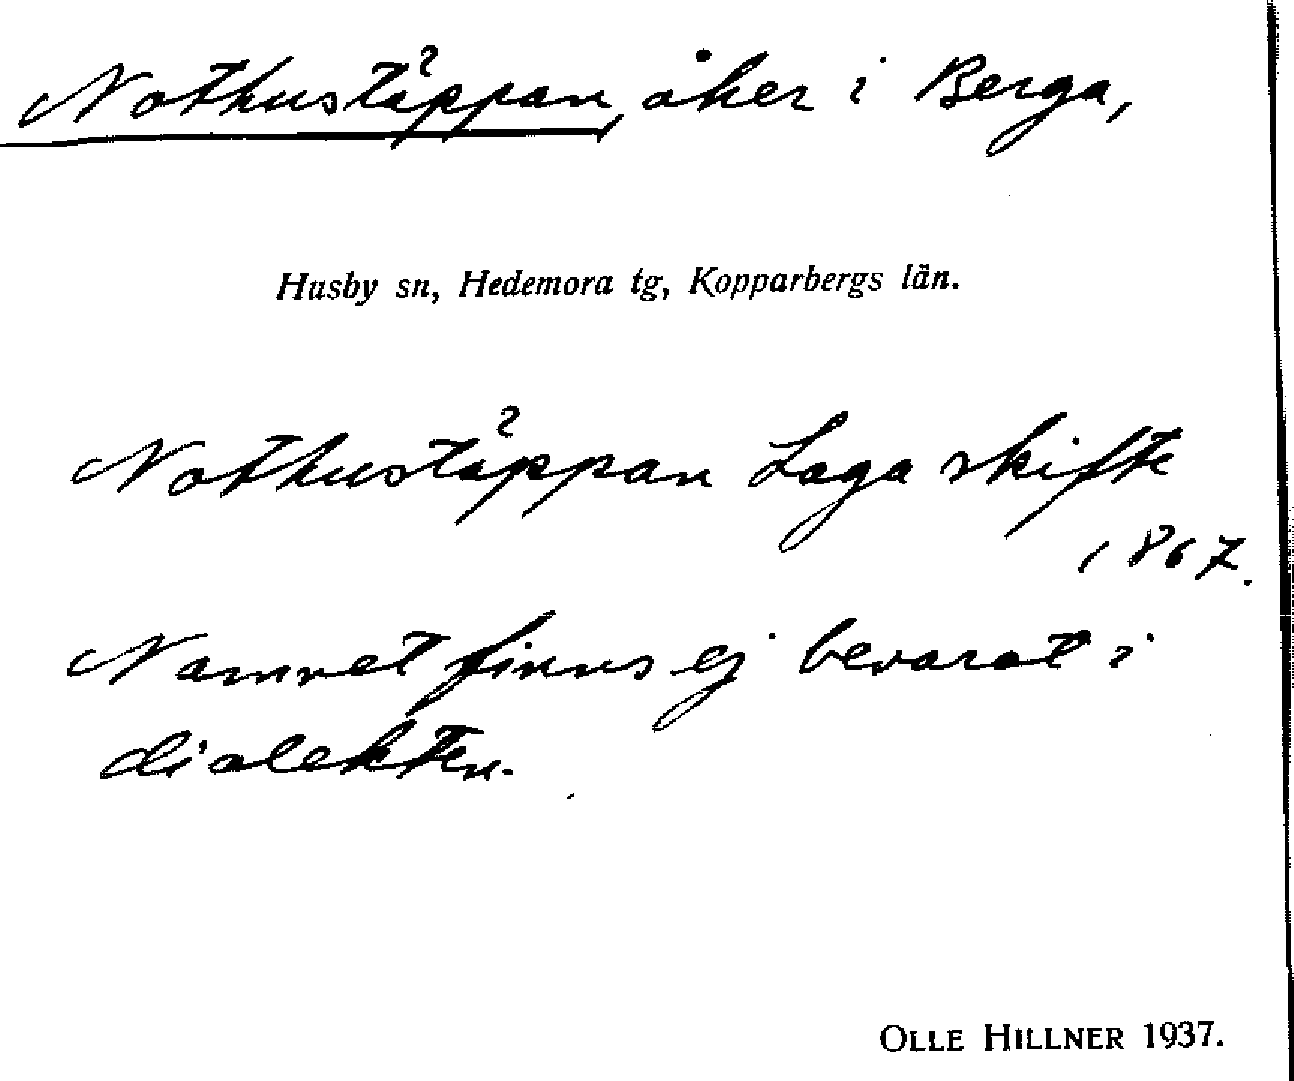 Nothustäppan, åker i Berga,
Husby sn, Hedemora tg, Kopparbergs län.
Nothustäppan Laga skifte
1867.
Namnet finns ej bevarat i
dialekten.
OLLE HILLNER 1937.